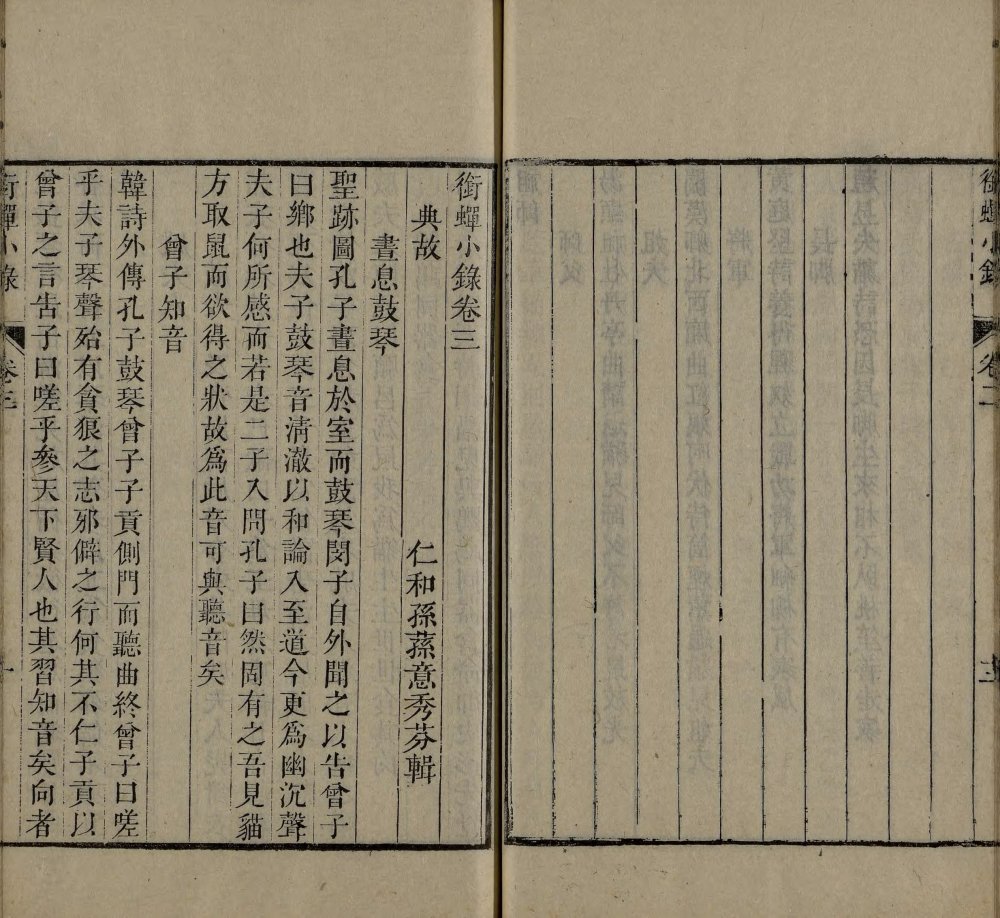 銜蟬小錄
卷二
銜蟬小錄卷三
仁和孫蓀意秀芬輯
典故
晝息鼓琴
聖跡圖孔子晝息於室而鼓琴閔子自外聞之以告曾子
曰鄉也夫子鼓琴音淸澈以和論入至道今更爲幽沉聲
夫子何所感而若是二子入問孔子曰然固有之吾見貓
方取鼠而欲得之狀故爲此音可與聽音矣
曾子知音
韓詩外傳孔子鼓琴曾子子貢側門而聽曲終曾子曰嗟
乎夫子琴聲殆有貪狼之志邪僻之行何其不仁子貢以
曾子之言告子曰嗟乎參天下賢人也其習知音矣向者
銜蟬小錄
卷三
一